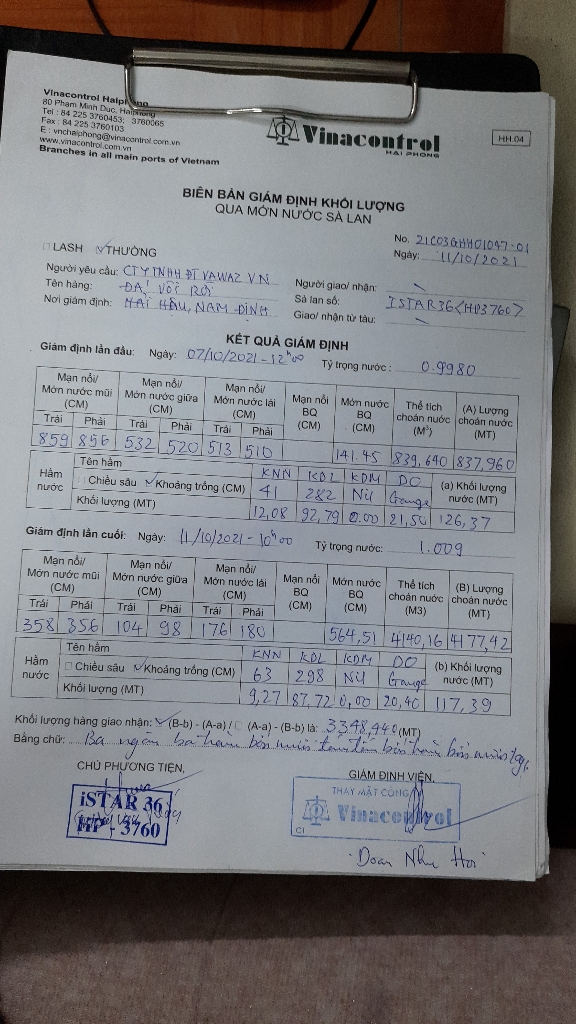 Vinacontrol Haiphong
80 Pham Minh Duc, Haiphong
Tel : 84 225 3760453; 3760065
Fax : 84 225 3760103
E : vnchaiphong@vinacontrol.com.vn
www.vinacontrol.com.vn
Branches in all main ports of Vietnam
Vinacontrol
HAI PHONG
HH.04
BIÊN BẢN GIÁM ĐỊNH KHỐI LƯỢNG
QUA MÓN NƯỚC SÀ LAN
No. 21C03GHH01047-01
Ngày: 11/10/2021
LASH THƯỜNG
Người yêu cầu: CTY TNHH ĐT VAWAZ VN
Người giao/ nhận:
Tên hàng: ĐÁ VÔI RỜI
Sà lan số: ISTAR36 <HP3760>
Nơi giám định: HẢI HẬU, NAM ĐỊNH
Giao/ nhận từ tàu:
KẾT QUẢ GIÁM ĐỊNH
Giám định lần đầu: Ngày: 07/10/2021 - 12h00 Tỷ trọng nước : 0.9980
Mạn nổi/ Mớn nước mũi (CM) Mạn nổi/ Mớn nước giữa (CM) Mạn nổi/ Mớn nước lái (CM) Mạn nổi BQ (CM) Mớn nước BQ (CM) Thể tích choán nước (M³) (A) Lượng choán nước (MT)
Trái Phải Trái Phải Trái Phải
859 856 532 520 513 510 141.45 839,640 837,960
Hầm nước Tên hầm KNN KDL KDM DO (a) Khối lượng nước (MT)
Chiều sâu Khoảng trống (CM) 41 282 Nil Gauge
Khối lượng (MT) 12,08 92,79 0.00 21,50 126,37
Giám định lần cuối: Ngày: 11/10/2021 - 10h00 Tỷ trọng nước: 1.009
Mạn nổi/ Mớn nước mũi (CM) Mạn nổi/ Mớn nước giữa (CM) Mạn nổi/ Mớn nước lái (CM) Mạn nổi BQ (CM) Mớn nước BQ (CM) Thể tích choán nước (M3) (B) Lượng choán nước (MT)
Trái Phải Trái Phải Trái Phải
358 356 104 98 176 180 564,51 4140,16 4177,42
Hầm nước Tên hầm KNN KDL KDM DO (b) Khối lượng nước (MT)
Chiều sâu Khoảng trống (CM) 63 298 Nil Gauge
Khối lượng (MT) 9,27 87,72 0,00 20,40 117,39
Khối lượng hàng giao nhận: (B-b) - (A-a) / (A-a) - (B-b) là: 3348,440 (MT)
Bằng chữ: Ba ngàn ba trăm bốn mươi tám tấn bốn trăm bốn mươi kg.
CHỦ PHƯƠNG TIỆN,
GIÁM ĐỊNH VIÊN,
iSTAR 36
HP - 3760
THAY MẶT CÔNG
Vinacontrol
C1
Doan Nhu Hoi